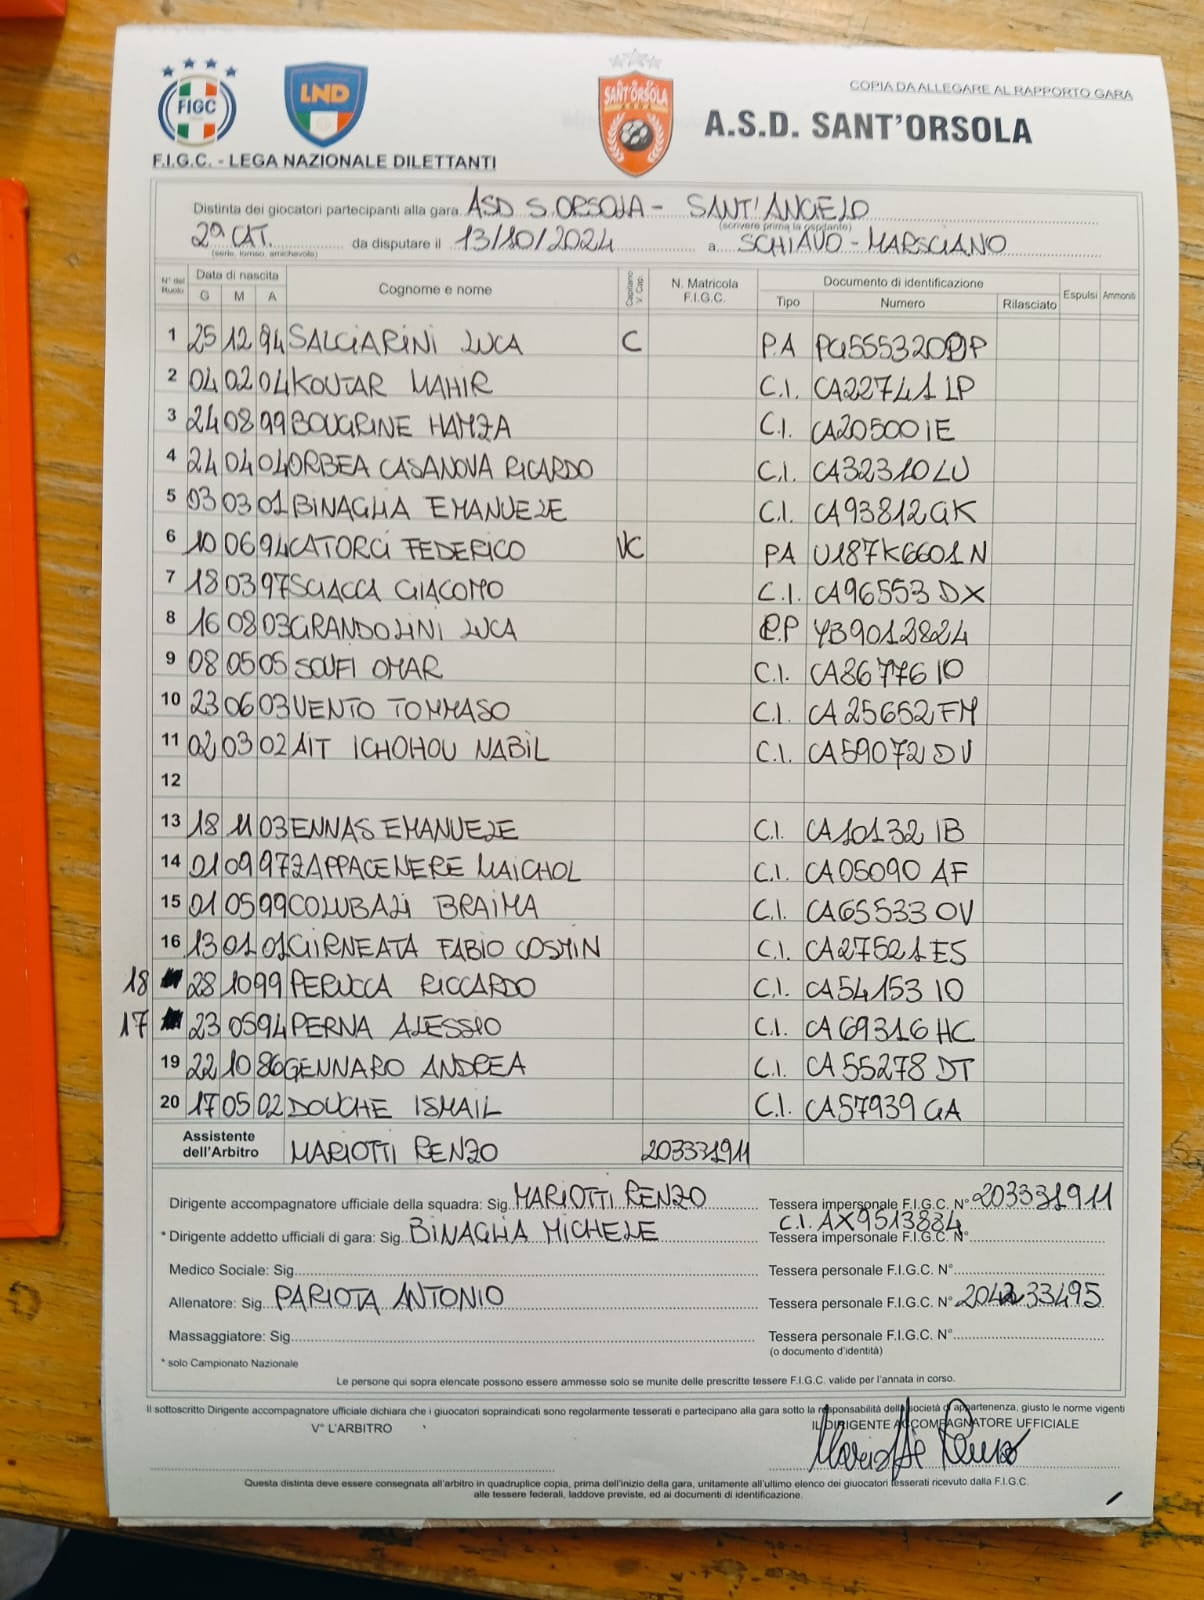 FIGC
LND
SANT'ORSOLA
COPIA DA ALLEGARE AL RAPPORTO GARA
A.S.D. SANT'ORSOLA
F.I.G.C. - LEGA NAZIONALE DILETTANTI
Distinta dei giocatori partecipanti alla gara ASD S. ORSOLA - SANT'ANGELO
(scrivere prima la ospitante)
2ª CAT. da disputare il 13/10/2024 a SCHIAVO - MARSCIANO
(serie, torneo, amichevole)
N° del Ruolo Data di nascita G M A Cognome e nome Capitano V. Cap. N. Matricola F.I.G.C. Documento di identificazione Tipo Numero Rilasciato Espulsi Ammoniti
1 25 12 94 SALCIARINI LUCA C P.A PG5553200P
2 04 02 04 KOUTAR MAHIR C.I. CA22741LP
3 24 08 99 BOUGRINE HAMZA C.I. CA20500IE
4 24 04 04 ORBEA CASANOVA RICARDO C.I. CA32310LU
5 03 03 01 BINAGLIA EMANUELE C.I. CA93812GK
6 10 06 94 CATORCI FEDERICO VC PA U187K6601N
7 18 03 97 SCIACCA GIACOMO C.I. CA96553DX
8 16 08 03 GRANDOLINI LUCA P.P YB9012824
9 08 05 05 SOUFI OMAR C.I. CA86776IO
10 23 06 03 VENTO TOMMASO C.I. CA25652FM
11 02 03 02 AIT ICHOHOU NABIL C.I. CA59072DV
12
13 18 11 03 ENNAS EMANUELE C.I. CA10132IB
14 01 09 97 ZAPPACENERE MAICHOL C.I. CA05090AF
15 01 05 99 COLUBALI BRAIMA C.I. CA65533OV
16 13 01 01 CIRNEATA FABIO COSMIN C.I. CA27521ES
18 28 10 99 PERUCCA RICCARDO C.I. CA54153IO
17 23 05 94 PERNA ALESSIO C.I. CA69316HC
19 22 10 86 GENNARO ANDREA C.I. CA55278DT
20 17 05 02 DOUCHE ISMAIL C.I. CA57939GA
Assistente dell'Arbitro MARIOTTI RENZO 203331911
Dirigente accompagnatore ufficiale della squadra: Sig. MARIOTTI RENZO Tessera impersonale F.I.G.C. N° 203331911
* Dirigente addetto ufficiali di gara: Sig. BINAGLIA MICHELE C.I. AX9513884 Tessera impersonale F.I.G.C. N°
Medico Sociale: Sig. Tessera personale F.I.G.C. N°
Allenatore: Sig. PARIOTA ANTONIO Tessera personale F.I.G.C. N° 204233495
Massaggiatore: Sig. Tessera personale F.I.G.C. N°
(o documento d'identità)
* solo Campionato Nazionale
Le persone qui sopra elencate possono essere ammesse solo se munite delle prescritte tessere F.I.G.C. valide per l'annata in corso.
Il sottoscritto Dirigente accompagnatore ufficiale dichiara che i giuocatori sopraindicati sono regolarmente tesserati e partecipano alla gara sotto la responsabilità della società d'appartenenza, giusto le norme vigenti
V° L'ARBITRO IL DIRIGENTE ACCOMPAGNATORE UFFICIALE
Mariotti Renzo
Questa distinta deve essere consegnata all'arbitro in quadruplice copia, prima dell'inizio della gara, unitamente all'ultimo elenco dei giuocatori tesserati ricevuto dalla F.I.G.C.
alle tessere federali, laddove previste, ed ai documenti di identificazione.